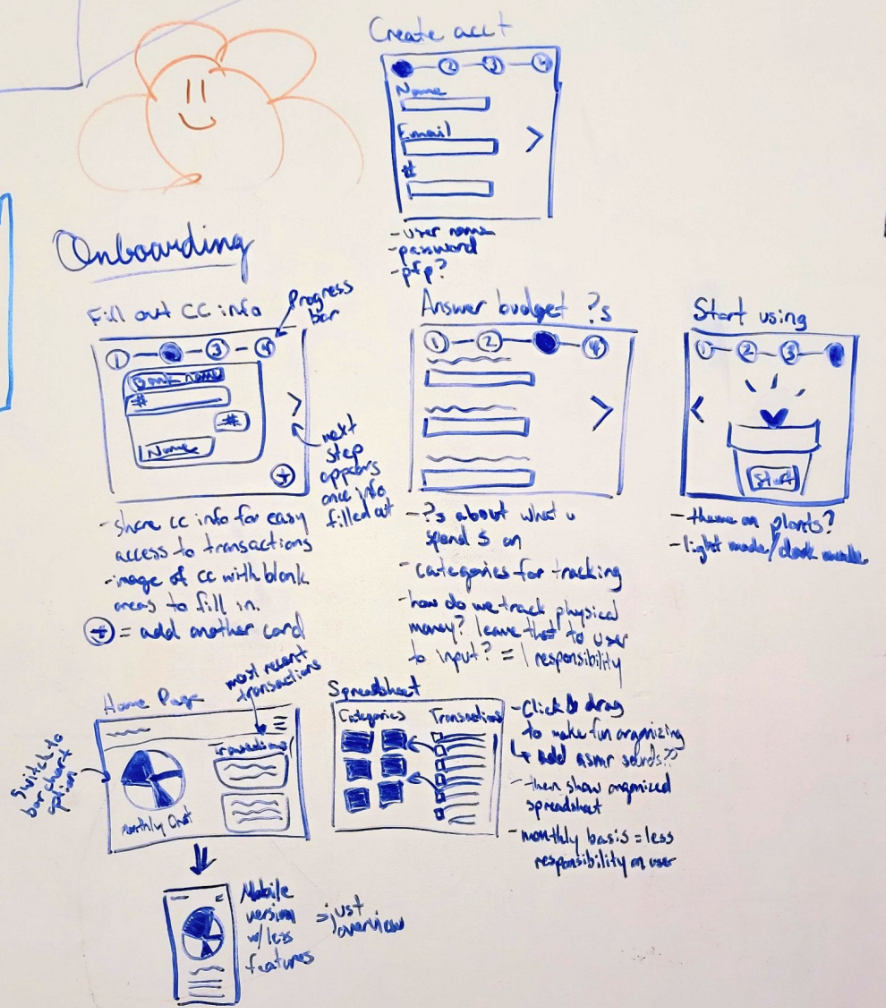 Create acct
② ③ ④
Name
Email
#
- user name
- password
- pfp?
Onboarding
Fill out CC info
Progress
bar
① ③ ④
Bank name
#
#
Name
next
step
appears
once info
filled out
- share cc info for easy
access to transactions
- image of cc with blank
areas to fill in.
⊕ = add another card
Answer budget ?s
① ② ④
- ?s about what u
spend $ on
- categories for tracking
- how do we track physical
money? leave that to user
to input? = ↓ responsibility
Start using
① ② ③
Start
- theme on plants?
- light mode/dark mode
Home Page
most recent
transactions
Transactions
Switch to
bar chart
option
monthly Chart
Mobile
version
w/less
features
= just
overview
Spreadsheet
Categories Transactions
- Click & drag
to make fun organizing
↳ add asmr sounds??
- then show organized
spreadsheet
- monthly basis = less
responsibility on user